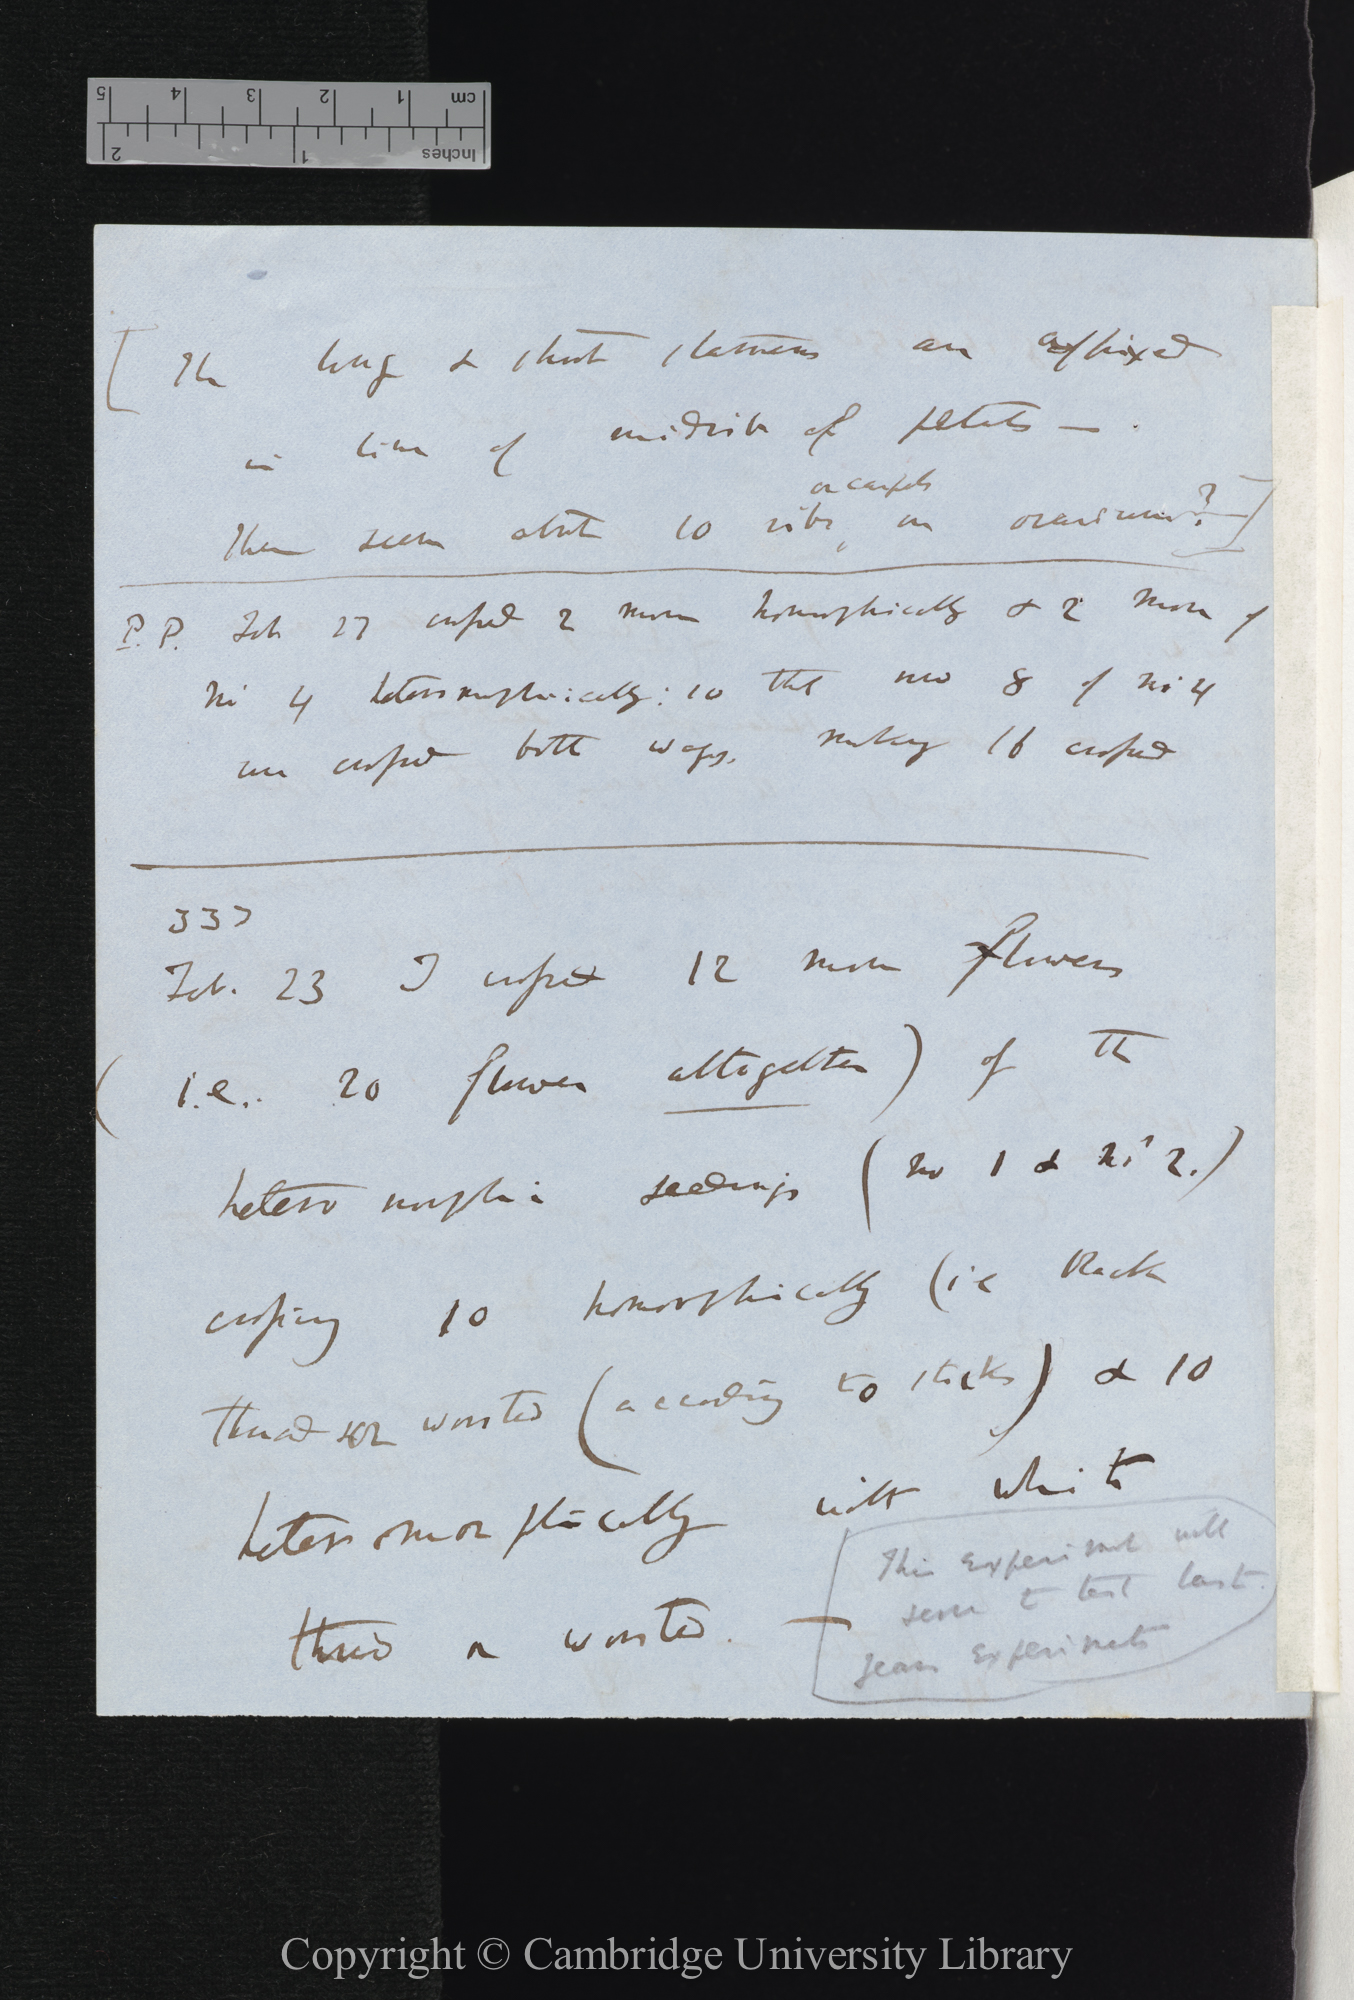 cm 1 2 3 4 5
Inches 1 2
[The long & short stamens are affixed
in line of midrib of petals — .
or carpels
There seem about 10 ribs, in ovarium?]
P.P. Feb 27 crossed 2 more homomorphically & 2 more of
No 4 heteromorphically: so that now 8 of No 4
are crossed both ways, making 16 crossed
337
Feb. 23 I crossed 12 more flowers
(i.e.. 20 flowers altogether) of the
heteromorphic seedlings (No 1 & No 2.)
crossing 10 homomorphically (i e black
thread or worsted (according to sticks) & 10
heteromorphically with white
thread or worsted. —
This experiment will
serve to test last
years experiments
Copyright © Cambridge University Library